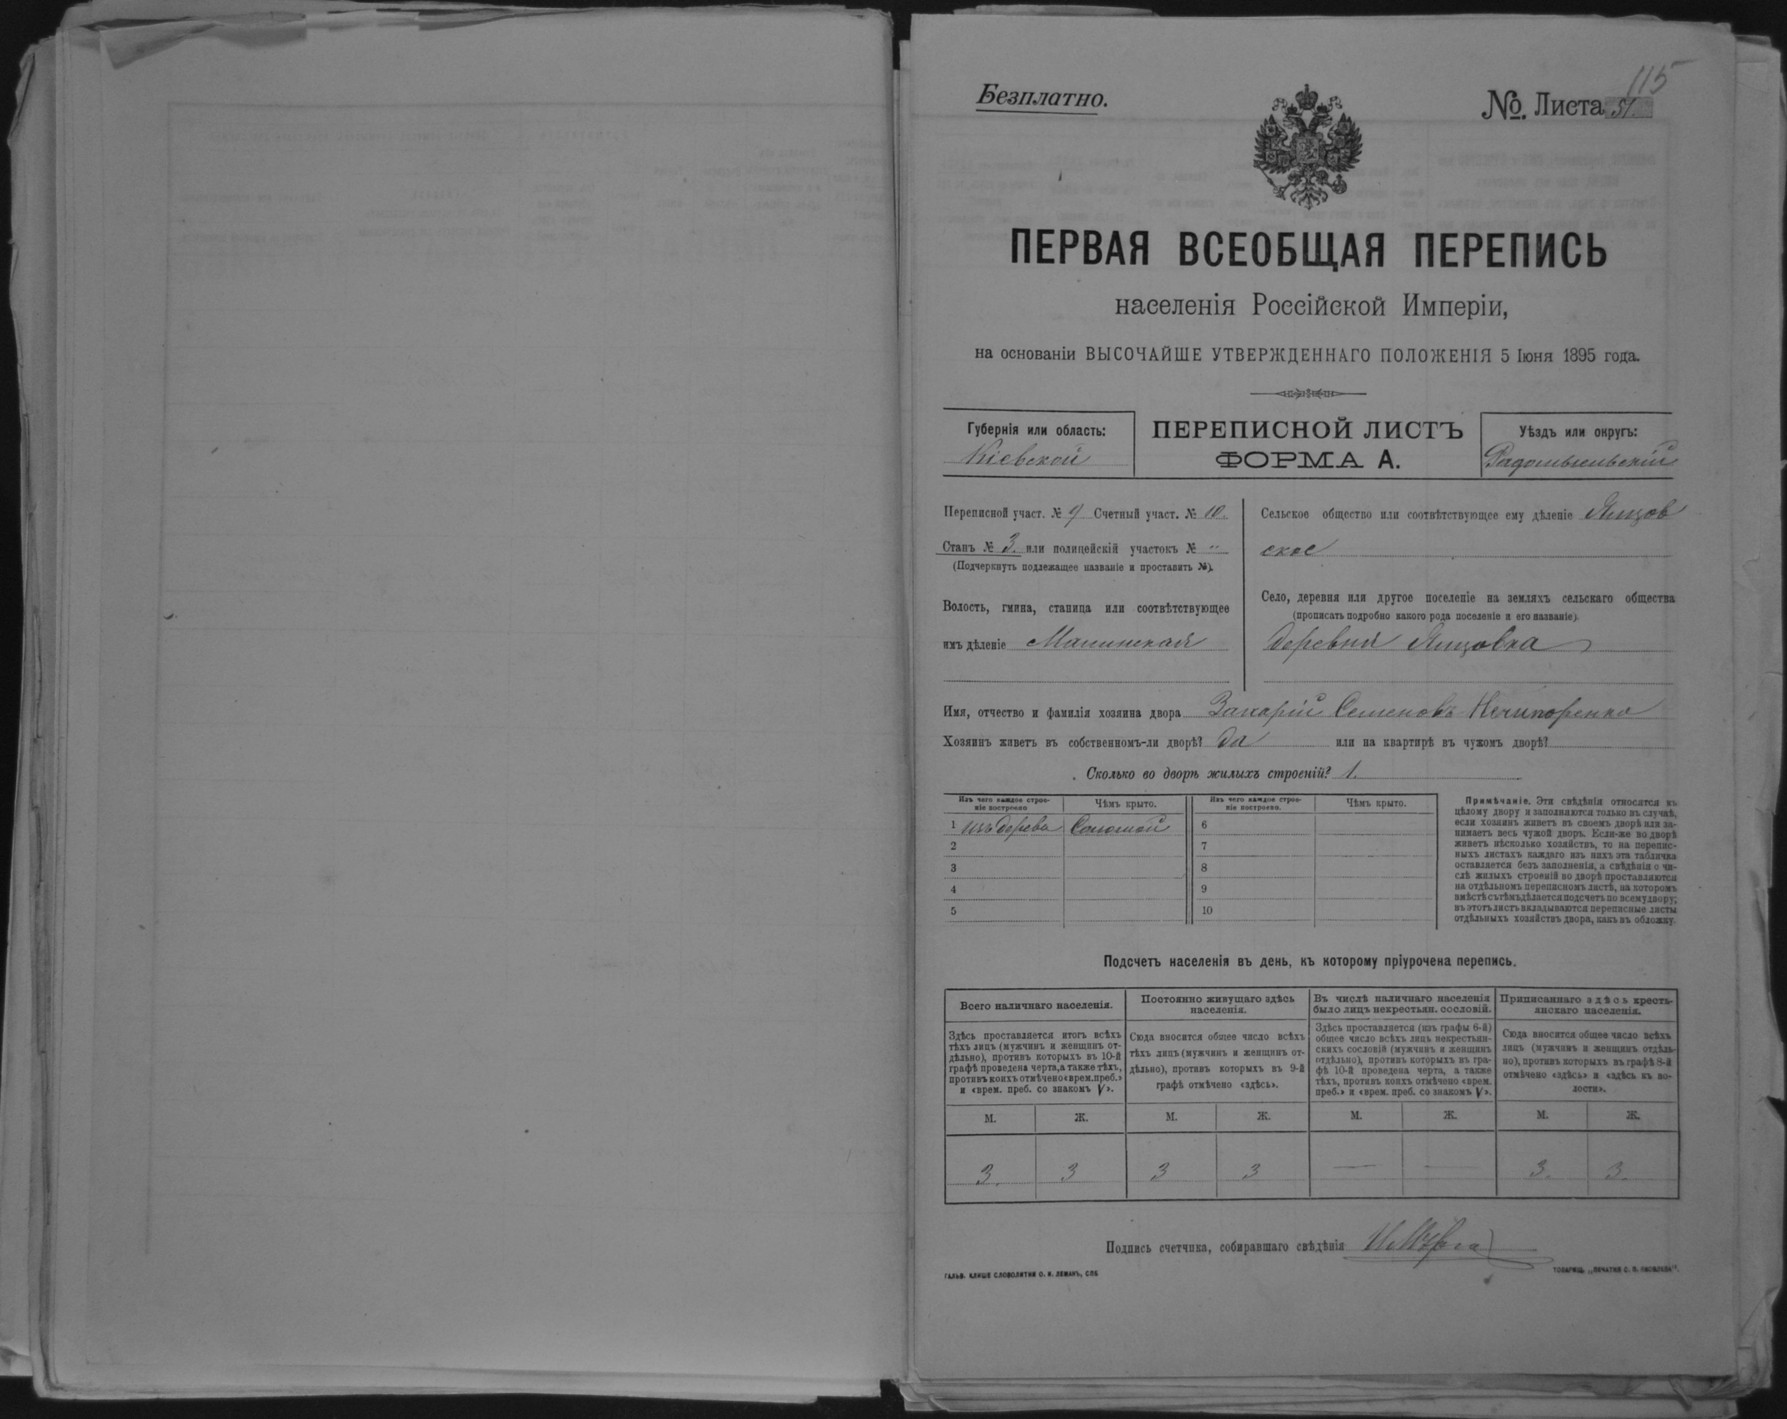 115
Безплатно.
№. Листа 51.
ПЕРВАЯ ВСЕОБЩАЯ ПЕРЕПИСЬ
населенія Россійской Имперіи,
на основаніи ВЫСОЧАЙШЕ УТВЕРЖДЕННАГО ПОЛОЖЕНІЯ 5 Іюня 1895 года.
Губернія или область:
Кіевской
ПЕРЕПИСНОЙ ЛИСТЪ
ФОРМА А.
Уѣздъ или округъ:
Радомысльскій
Переписной участ. № 9 Счетный участ. № 10.
Станъ № 3. или полицейскій участокъ № "
(Подчеркнуть подлежащее названіе и проставить №).
Волость, гмина, станица или соотвѣтствующее
имъ дѣленіе Малинская
Сельское общество или соотвѣтствующее ему дѣленіе Янцов
ское
Село, деревня или другое поселеніе на земляхъ сельскаго общества
(прописать подробно какого рода поселеніе и его названіе).
деревня Янцовка
Имя, отчество и фамилія хозяина двора Захарій Семеновъ Нечипоренко
Хозяинъ живетъ въ собственномъ-ли дворѣ? да или на квартирѣ въ чужомъ дворѣ?
Сколько во дворѣ жилыхъ строеній? 1.
Изъ чего каждое строе-
ніе построено
Чѣмъ крыто.
Изъ чего каждое строе-
ніе построено.
Чѣмъ крыто.
1 изъ дерева Соломой 6
2 7
3 8
4 9
5 10
Примѣчаніе. Эти свѣдѣнія относятся къ
цѣлому двору и заполняются только въ случаѣ,
если хозяинъ живетъ въ своемъ дворѣ или за-
нимаетъ весь чужой дворъ. Если-же во дворѣ
живетъ нѣсколько хозяйствъ, то на перепис-
ныхъ листахъ каждаго изъ нихъ эта табличка
оставляется безъ заполненія, а свѣдѣнія о чи-
слѣ жилыхъ строеній во дворѣ проставляются
на отдѣльномъ переписномъ листѣ, на которомъ
вмѣстѣ съ тѣмъ дѣлается подсчетъ по всему двору;
въ этотъ листъ вкладываются переписные листы
отдѣльныхъ хозяйствъ двора, какъ въ обложку.
Подсчетъ населенія въ день, къ которому пріурочена перепись.
Всего наличнаго населенія.
Здѣсь проставляется итогъ всѣхъ
тѣхъ лицъ (мужчинъ и женщинъ от-
дѣльно), противъ которыхъ въ 10-й
графѣ проведена черта, а также тѣхъ,
противъ коихъ отмѣчено «врем. преб.»
и «врем. преб. со знакомъ V».
Постоянно живущаго здѣсь
населенія.
Сюда вносится общее число всѣхъ
тѣхъ лицъ (мужчинъ и женщинъ от-
дѣльно), противъ которыхъ въ 9-й
графѣ отмѣчено «здѣсь».
Въ числѣ наличнаго населенія
было лицъ некрестьян. сословій.
Здѣсь проставляется (изъ графы 6-й)
общее число всѣхъ лицъ некрестьян-
скихъ сословій (мужчинъ и женщинъ
отдѣльно), противъ которыхъ въ гра-
фѣ 10-й проведена черта, а также
тѣхъ, противъ коихъ отмѣчено «врем.
преб.» и «врем. преб. со знакомъ V».
Приписаннаго здѣсь кресть-
янскаго населенія.
Сюда вносится общее число всѣхъ
лицъ (мужчинъ и женщинъ отдѣль-
но), противъ которыхъ въ графѣ 8-й
отмѣчено «здѣсь» и «здѣсь въ во-
лости».
М. Ж. М. Ж. М. Ж. М. Ж.
3. 3 3 3 — — 3. 3.
Подпись счетчика, собиравшаго свѣдѣнія
ГАЛЬВ. КЛИШЕ СЛОВОЛИТНИ О. И. ЛЕМАНЪ, СПБ
ТОВАРИЩ. „ПЕЧАТНЯ С. П. ЯКОВЛЕВА".